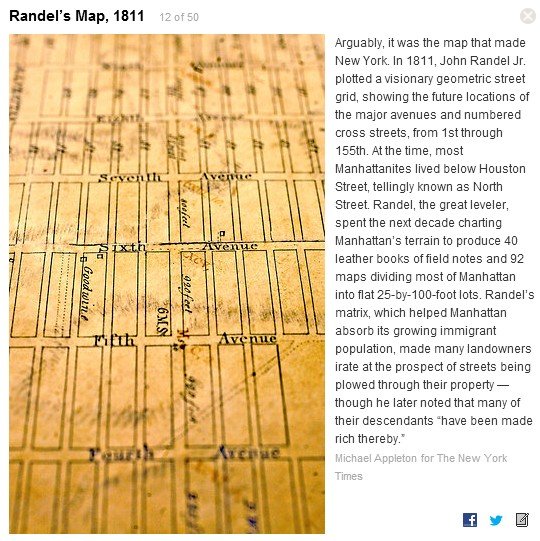 Randel's Map, 1811 12 of 50
Arguably, it was the map that made
New York. In 1811, John Randel Jr.
plotted a visionary geometric street
grid, showing the future locations of
the major avenues and numbered
cross streets, from 1st through
155th. At the time, most
Manhattanites lived below Houston
Street, tellingly known as North
Street. Randel, the great leveler,
spent the next decade charting
Manhattan's terrain to produce 40
leather books of field notes and 92
maps dividing most of Manhattan
into flat 25-by-100-foot lots. Randel's
matrix, which helped Manhattan
absorb its growing immigrant
population, made many landowners
irate at the prospect of streets being
plowed through their property —
though he later noted that many of
their descendants “have been made
rich thereby.”
Michael Appleton for The New York
Times
Eighth Avenue
Seventh Avenue
Sixth Avenue
Goodwine
920 feet
6MS
Fifth Avenue
Fourth Avenue